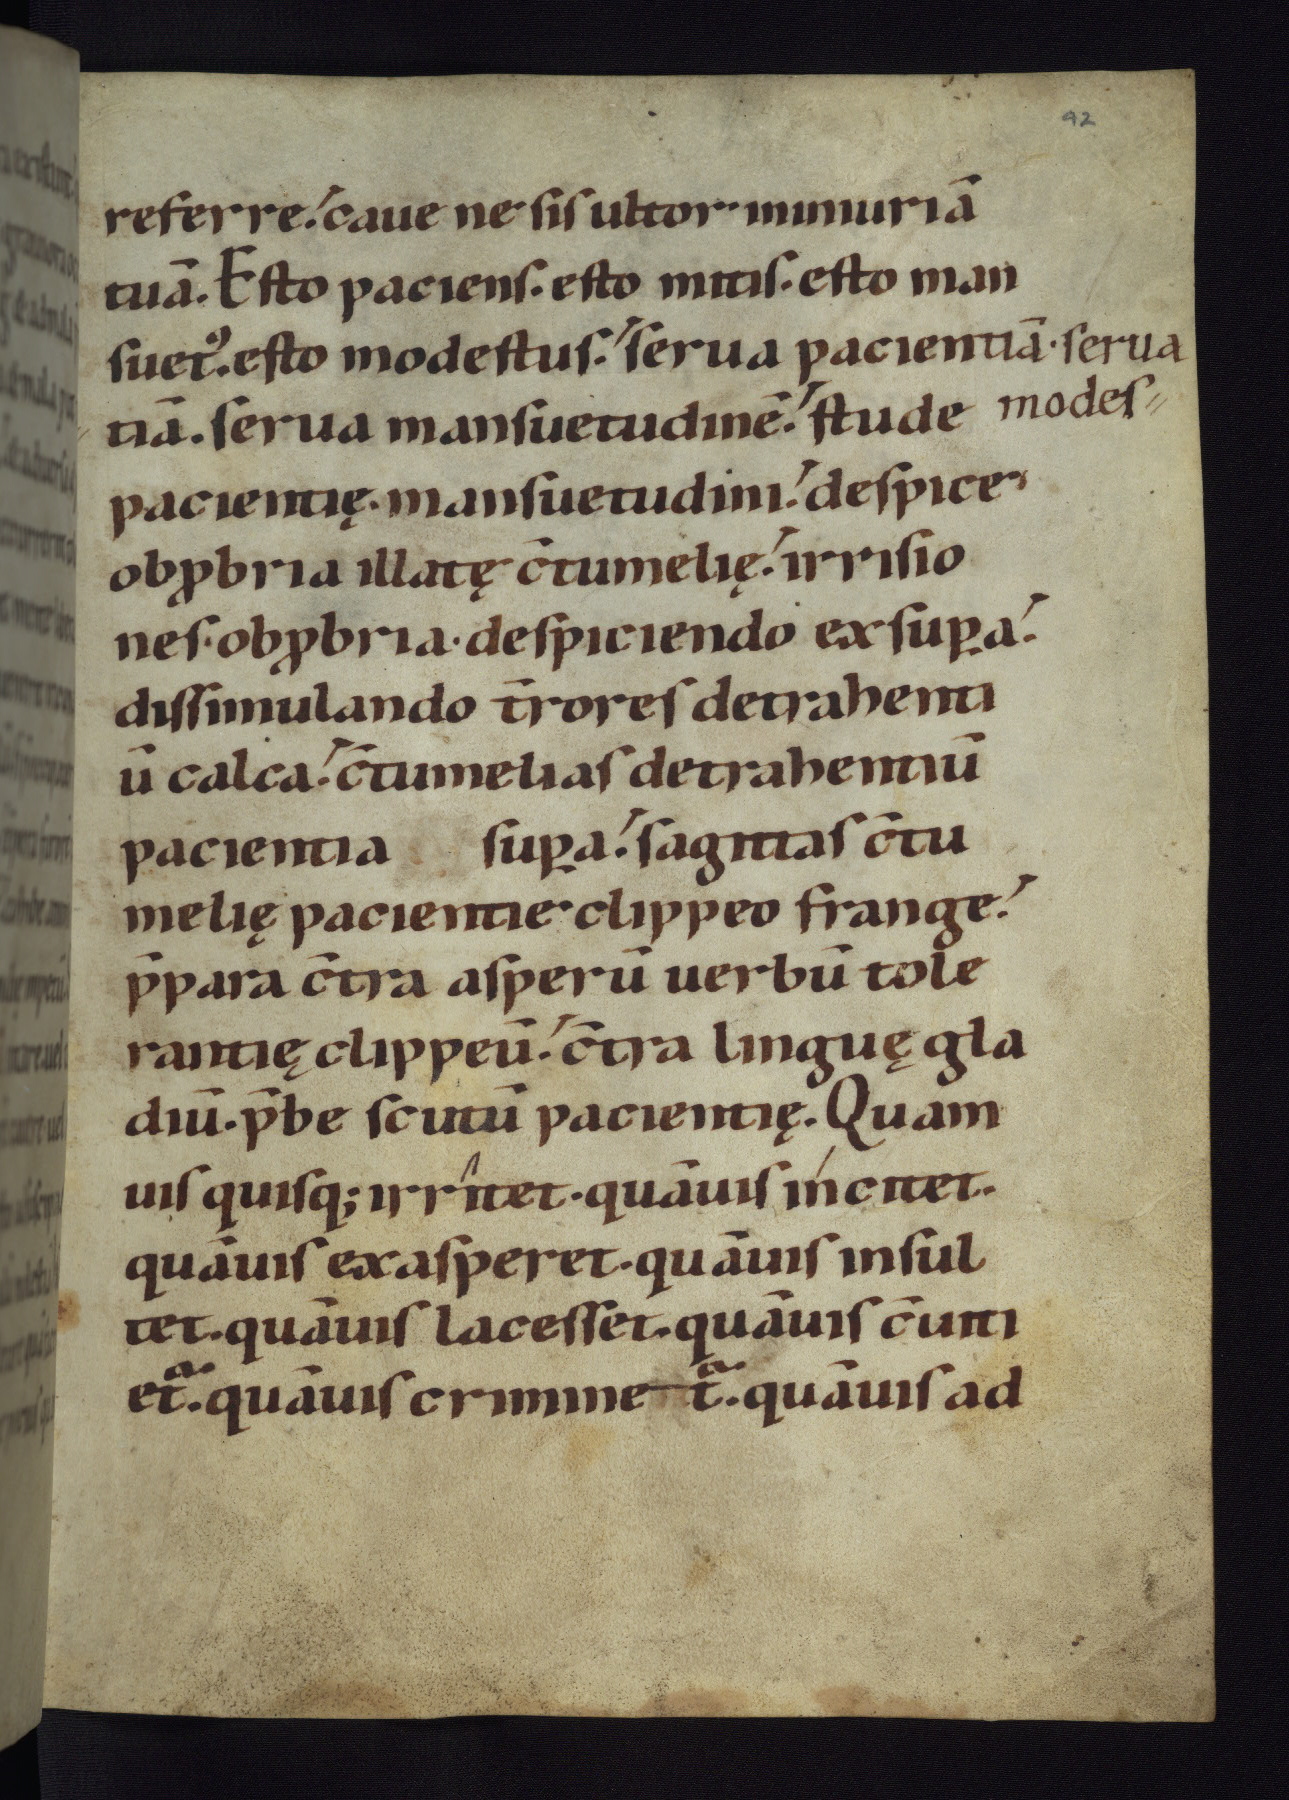 92
referre. caue ne sis ultor in iniuriā
tuā. Esto paciens. esto mitis. esto man
suetꝰ. esto modestus. serua pacientiā. serua
modes
tiā. serua mansuetudinē. stude
pacientię. mansuetudini. despice
obꝓbria illatę c̄tumelię. irrisio
nes. obꝓbria. despiciendo exsuꝑa.
dissimulando t̄rores detrahenti
ū calca. c̄tumelias detrahentiū
pacientia suꝑa. sagittas c̄tu
melię pacientie clippeo frange.
p̄para c̄tra asperū uerbū tole
rantię clippeū. c̄tra linguę gla
diū. p̄be scutū pacientię. Quam
uis quisq; irritet. quāuis incitet.
quāuis exasperet. quāuis insul
tet. quāuis lacesset. quāuis c̄uiti
etᷓ. quāuis crimine tᷓ. quāuis ad